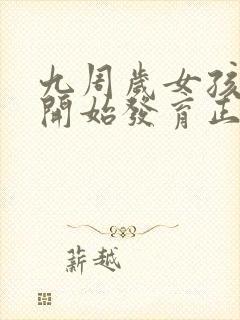 九周歲女孩
開始發育正
薪越